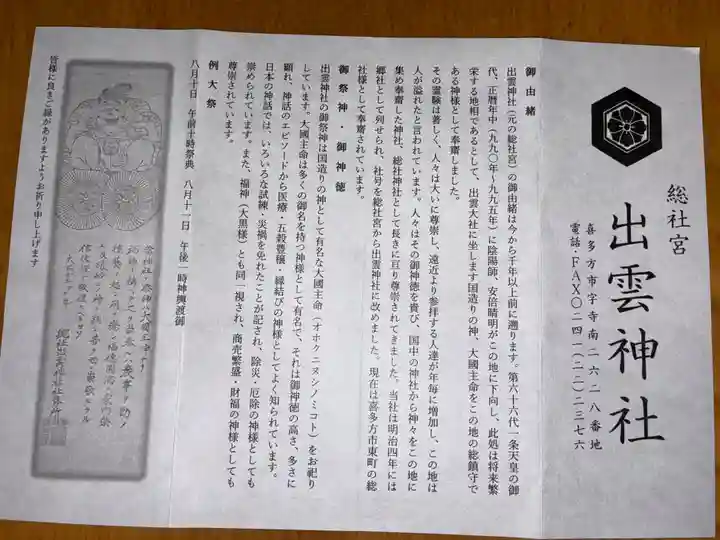 総社宮
出雲神社
喜多方市字寺南二六二八番地
電話・FAX〇二四一(二二)二三七六
御由緒
出雲神社(元の総社宮)の御由緒は今から千年以上前に遡ります。第六十六代一条天皇の御
代、正暦年中(九九〇年~九九五年)に陰陽師、安倍晴明がこの地に下向し、此処は将来繁
栄する地相であるとして、出雲大社に坐します国造りの神、大國主命をこの地の総鎮守で
ある神様として奉齋しました。
その霊験は著しく、人々は大いに尊崇し、遠近より参拝する人達が年毎に増加し、この地は
人が溢れたと言われています。人々はその御神徳を貴び、国中の神社から神々をこの地に
集め奉齋した神社、総社神社として長きに亘り尊崇されてきました。当社は明治四年には
郷社として列せられ、社号を総社宮から出雲神社に改めました。現在は喜多方市東町の総
社様として奉齋されています。
御祭神・御神徳
出雲神社の御祭神は国造りの神として有名な大國主命(オホクニヌシノミコト)をお祀り
しています。大國主命は多くの御名を持つ神様として有名で、それは御神徳の高さ、多さに
顕れ、神話のエピソードから医療・五穀豊穣・縁結びの神様としてよく知られています。
日本の神話では、いろいろな試練・災禍を免れたことが記され、除災・厄除の神様としても
崇められています。また、福神(大黒様)とも同一視され、商売繁盛・財福の神様としても
尊崇されています。
例大祭
八月十日 午前十時祭典 八月十一日 午後一時神輿渡御
皆様に良きご縁がありますようお祈り申し上げます